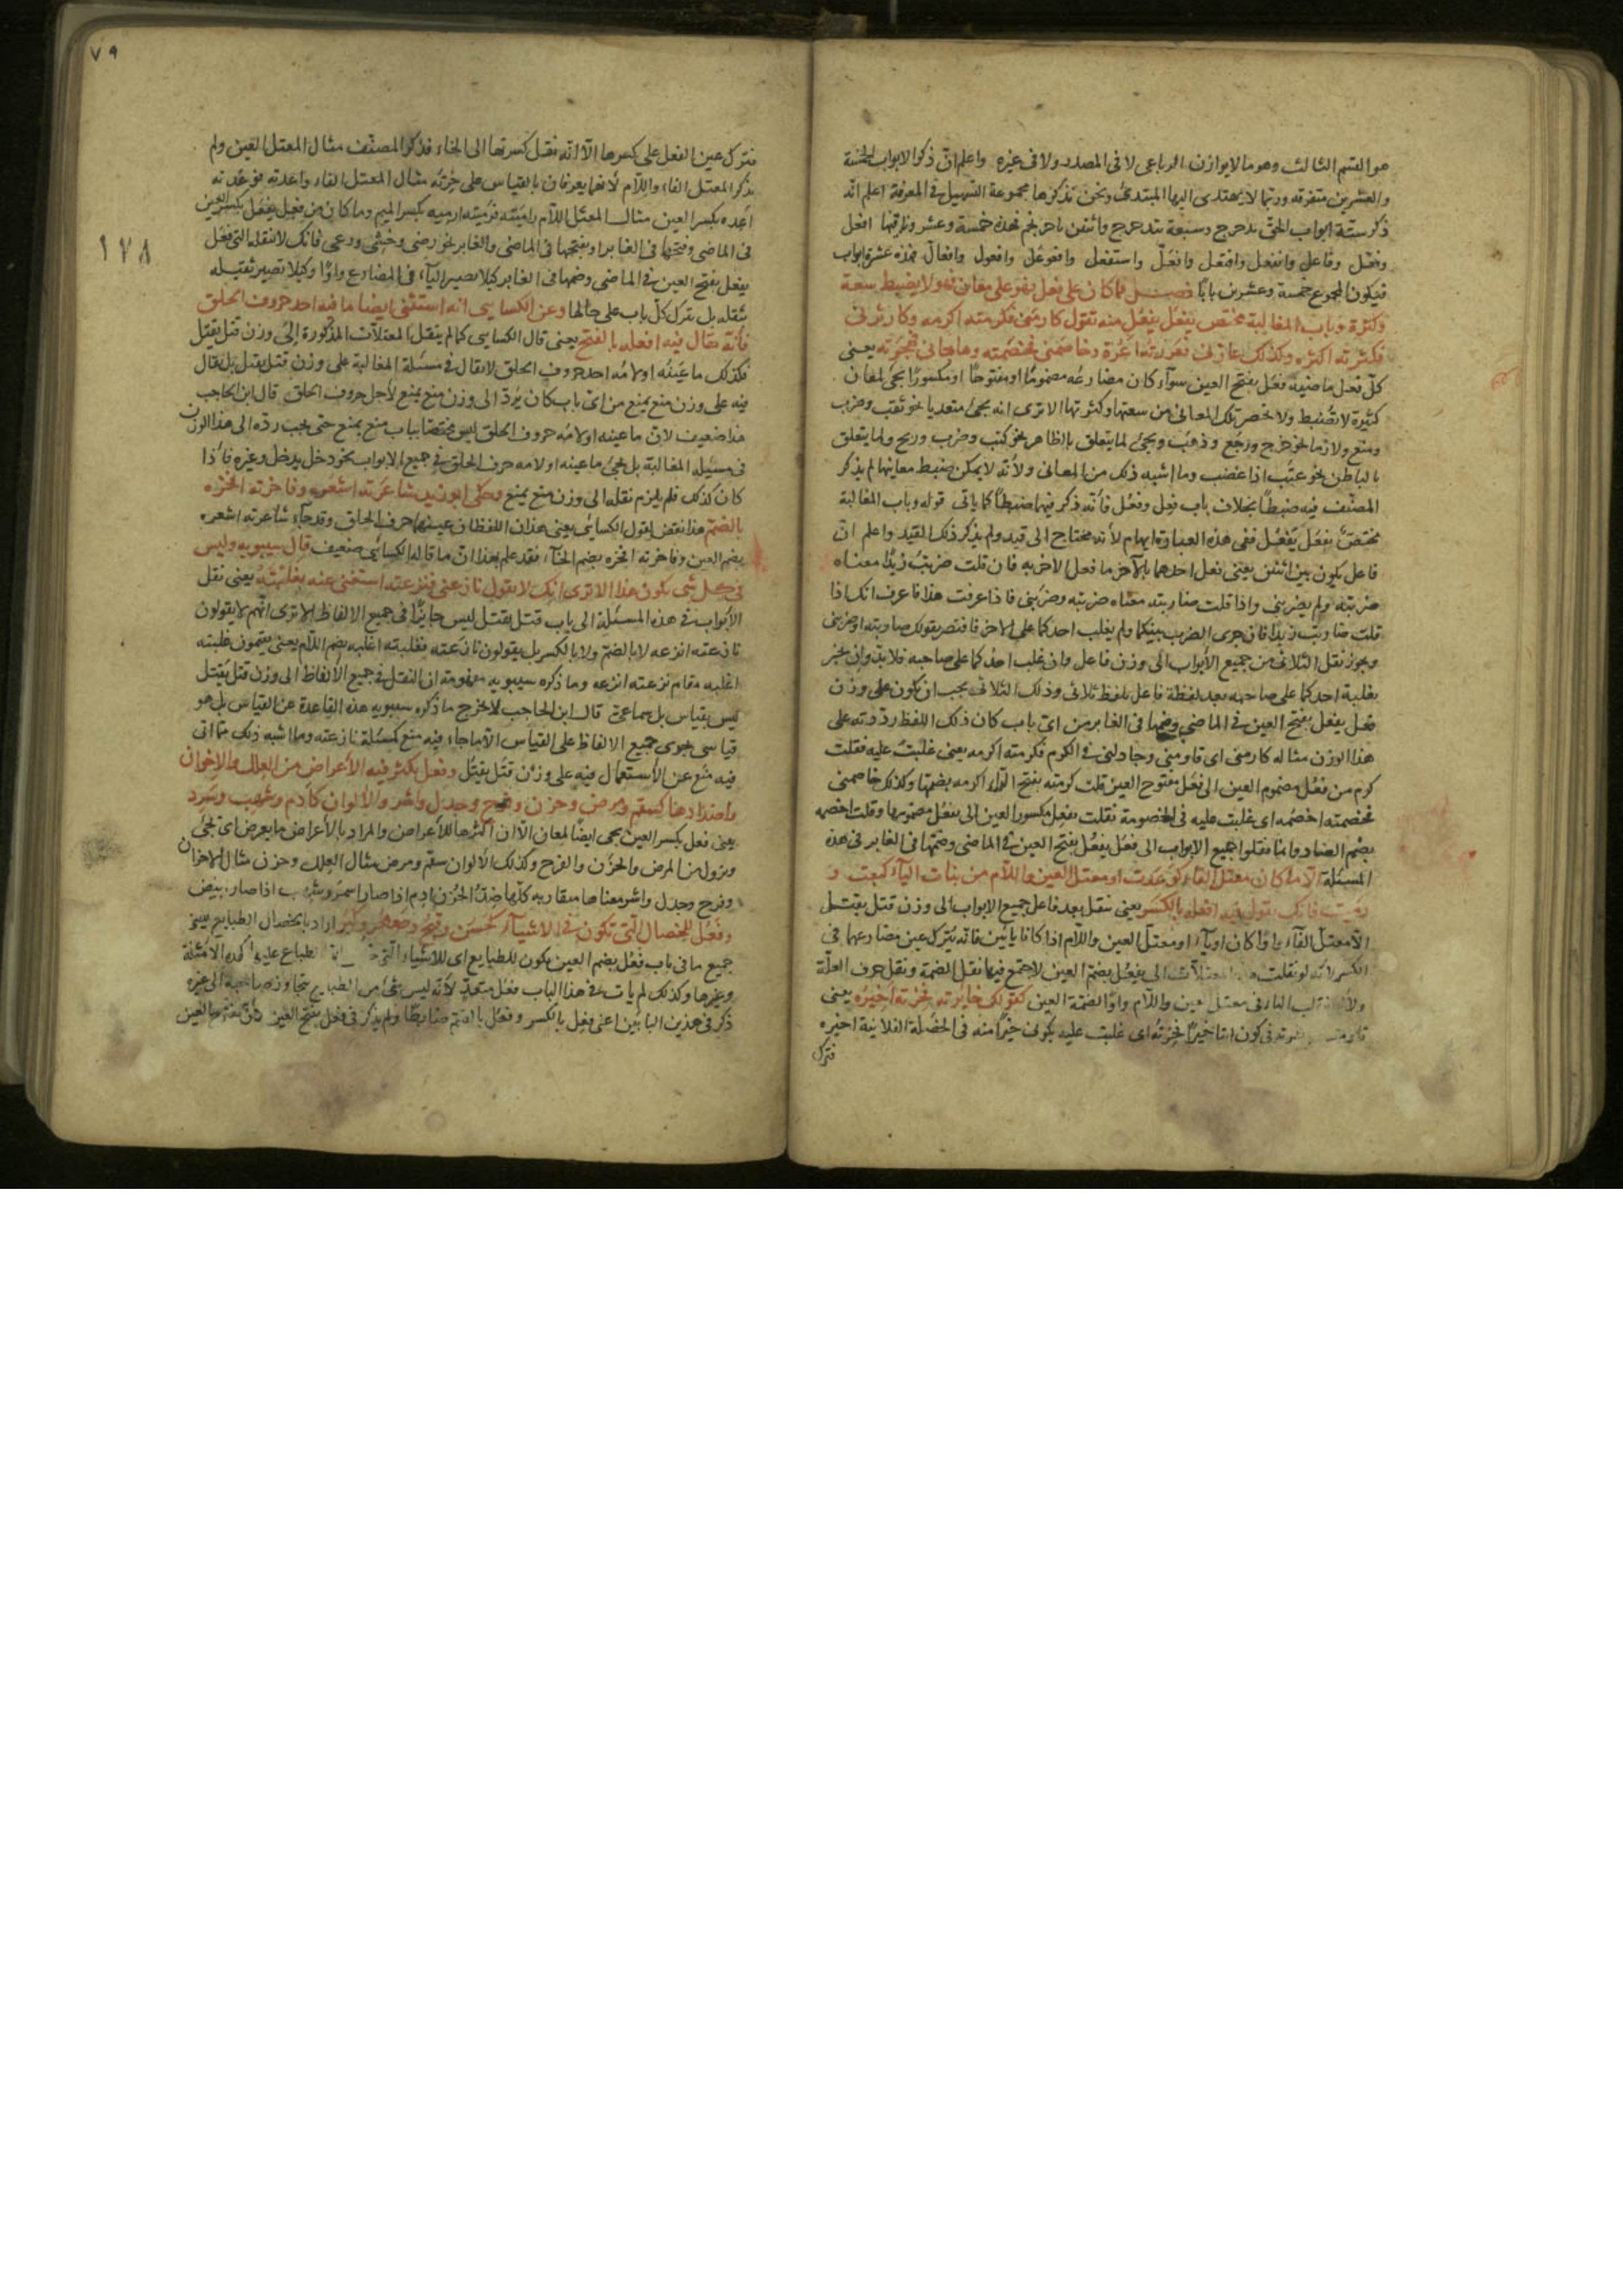 هو القسم الثالث وهو ما لا يوازن الرباعى لا فى المصدر ولا فى غيره واعلم انّ ذكر الابواب الخمسة
والعشرين متفرقه وربما لا يهتدى اليها المبتدئ ونحن نذكرها مجموعة التسهيل فى المعرفة اعلم انّه
ذكر ستّة ابواب الحق بدحرج وسبعة بتدحرج واثنين باحرنجم فهذه خمسة وعشر وزاد فيها افعل
وفعّل وفاعل وانفعل وافتعل وافعلّ واستفعل وافوعل وافعول وافعالّ فهذه عشرة ابواب
فيكون المجموع خمسة وعشرين بابًا فصل فما كان على فعل فهو على معان فهو لا يضبط سعة
وكثرة وباب المغالبة مختص بفعل يفعل منه تقول كارمنى فكرمته اكرمه وكاثرنى
فكثرته اكثره وكذلك عازنى فعززته اعزّه وخاصمنى فخصمته وهاجانى فهجوته يعنى
كلّ فعل ماضيه فعل بفتح العين سوآء كان مضارعه مضمومًا او مفتوحًا او مكسورًا يجئ لمعان
كثيرة لا تضبط ولا تحصر تلك المعانى من سعتها وكثرتها الا ترى انه يجئ متعديا نحو ثقب وضرب
ومنع ولازما نحو خرج ورجع وذهب ويجئ لما يتعلق بالظاهر نحو كتب وضرب وربح ولما يتعلق
بالباطن نحو عتب اذا غضب وما اشبه ذلك من المعانى ولانّه لا يمكن ضبط معانيها لم يذكر
المصنّف فيه ضبطًا بخلاف باب فعِل وفعُل فانّه ذكر فيهما ضبطًا كما ياتى قوله وباب المغالبة
مختصّ بفعَل يَفعُل ففى هذه العبارة ابهام لانّه محتاج الى قيد ولم يذكر ذلك القيد واعلم انّ
فاعل يكون بين اثنين يعنى فعل احدهما بالآخر ما فعل الآخر به فان قلت ضربتُ زيدًا معناه
ضربته ولم يضربنى واذا قلت ضاربته معناه ضربته وضربنى فاذا عرفت هذا فاعرف انك اذا
قلت ضاربت زيدًا فان جرى الضرب بينكما ولم يغلب احدكما على الآخر فاقتصر بقولك ضاربته او ضاربنى
ويجوز نقل الثلاثى من جميع الأبواب الى وزن فاعل وان غلب احدكما على صاحبه فلا بد وان يخبر
بغلبة احدكما على صاحبه بعد لفظة فاعل بلفظ ثلاثى وذلك الثلاثى يجب ان يكون على وزن
فعل يفعل بفتح العين فى الماضى وضمها فى الغابر من اىّ باب كان ذلك اللفظ رددته على
هذا الوزن مثاله كارمنى اى قاومنى وجادلنى فى الكرم فكرمته اكرمه يعنى غلبتُ عليه فنقلت
كرم من فعُل مضموم العين الى فعَل مفتوح العين قلت كرمته بفتح الرّاء اكرمه بضمها وكذلك خاصمنى
فخصمته اخصُمه اى غلبت عليه فى الخصومة نقلت يفعِل مكسور العين الى يفعُل مضمومها وقلت اخصمه
بضم الضاد وانما نقلوا جميع الابواب الى فعَل يفعُل بفتح العين فى الماضى وضمّها فى الغابر فى هذه
المسئلة الّا ما كان معتلّ الفاء كوَعدت او معتلّ العين واللّام من بنات اليآء كبعت و
رميت فانك تقول فيه افعله بالكسر يعنى تنقل بعد فاعل جميع الابواب الى وزن قتل يقتل
الّا معتلّ الفآء واوًا كان او يآء او معتلّ العين واللّام اذا كانا يائين فانه يترك عين مضارعهما فى
الكسر لانّه لو نقلت المعتلات الى يفعُل بضمّ العين لاجتمع فيها ثقل الضمة وثقل حرف العلّة
العين واللّام واوًا لضمّة العين كقولك خايرته فخِرته اخيرُه يعنى
فى كون انا خيرًا فخِرته اى غلبت عليه بكونى خيرًا منه فى الخصلة الفلانية اخيره
فترك
٧٩
فترك عين الفعل على كسرها الّا انّه نقل كسرتها الى الخاء فذكر المصنّف مثال المعتل العين ولم
يذكر المعتل الفاء واللّام لانهما يعرفان بالقياس على خِرته مثال المعتل الفاء واعدته فوعدته
اعِده بكسر العين مثال المعتل اللّام راميته فرميته ارميه بكسر الميم وما كان من فعِل يفعَل بكسر العين
فى الماضى وفتحها فى الغابر او بفتحها فى الماضى والغابر نحو رضى وخشى ورعى فانك لا تنقله الى فعَل
يفعل بفتح العين فى الماضى وضمها فى الغابر كيلا تصير اليآء فى المضارع واوًا وكيلا تصير ثقيله
ثقله بل يترك كلّ باب على حالها وعن الكسايى انه استثنى ايضا ما فيه احد حروف الحلق
فانّه يقال فيه افعله بالفتح يعنى قال الكسايى كما لم ينقل المعتلات المذكورة الى وزن قتل يقتل
فكذلك ما عينُه او لامُه احد حروف الحلق لا يقال فى مسئلة المغالبة على وزن قتل يقتل بل يقال
فيه على وزن منع يمنع من اىّ باب كان يُردّ الى وزن منع يمنع لأجل حروف الحلق قال ابن الحاجب
هذا ضعيف لانّ ما عينه او لامُه حروف الحلق ليس مختصّا بباب منع يمنع حتى يجب ردّه الى هذا الوزن
فى مسيلة المغالبة بل يجئ ما عينه او لامه حرف الحلق فى جميع الابواب نحو دخل يدخل وغيره فاذا
كان كذلك فلم يلزم نقله الى وزن منع يمنع وحكى ابو زيد شاعرته اشعُره وفاخرته افخُره
بالضمّ هذا نقض لقول الكسايى يعنى هذان اللفظان عينهما حرف الحلق وقد جآء شاعرته اشعره
بضم العين وفاخرته افخره بضم الخاء فقد علم بهذا انّ ما قاله الكسائى ضعيف قال سيبويه وليس
فى كل شئ يكون هذا الا ترى انك لا تقول نازعنى فنزعته استغنى عنه بغلبته يعنى نقل
الأبواب فى هذه المسئلة الى باب قتل يقتل ليس جايزًا فى جميع الالفاظ الا ترى انّهم لا يقولون
نازعته انزعه لا بالضمّ ولا بالكسر بل يقولون نازعته فغلبته اغلبه بضم اللّام يعنى يقيمون غلبته
اغلبه مقام نزعته انزعه وما ذكره سيبويه مفهومه ان النقل فى جميع الألفاظ الى وزن قتل يقتل
ليس بقياس بل سماعىّ قال ابن الحاجب لا يخرج ما ذكره سيبويه هذه القاعدة عن القياس بل هو
قياسى يجرى جميع الالفاظ على القياس الّا ما جاء فيه منع كمسئلة نازعته وما اشبه ذلك ممّا اتى
فيه منع عن الأستعمال فيه على وزن قتل يقتل وفعِل يكثر فيه الأعراض من العلل والاحزان
واضدادها كسقم ومرض وحزن وفرح وجدل واشر والألوان كأدم وشهب وسَود
يعنى فعل بكسر العين يجئ ايضًا لمعان الّا ان اكثرها للأعراض والمراد بالأعراض ما يعرض اى يجئ
ويزول من المرض والحزن والفرح وكذلك الألوان سقم ومرض مثال العلل وحزن مثال الاحزان
وفرح وجدل واشر معناها متقاربه كلّها ضدّ الحُزن ادم اذا صار اسمر وشهب اذا صار ابيض
وفعُل للخصال التى تكون فى الاشيآء كحسن وقبح وصغر وكبر اراد بالخصال الطبايع يعنى
جميع ما فى باب فعُل بضم العين يكون للطبايع اى للأشياء التى الطباع عليها كهذه الأمثلة
وغيرها وكذلك لم يات فى هذا الباب فعل متعدٍّ لانّه ليس شئ من الطبايع يتجاوز صاحبه الى غيره
ذكر فى هذين البابين اعنى فعِل بالكسر وفعُل بالضم ضابطًا ولم يذكر فى فعل بفتح العين
١٧٨